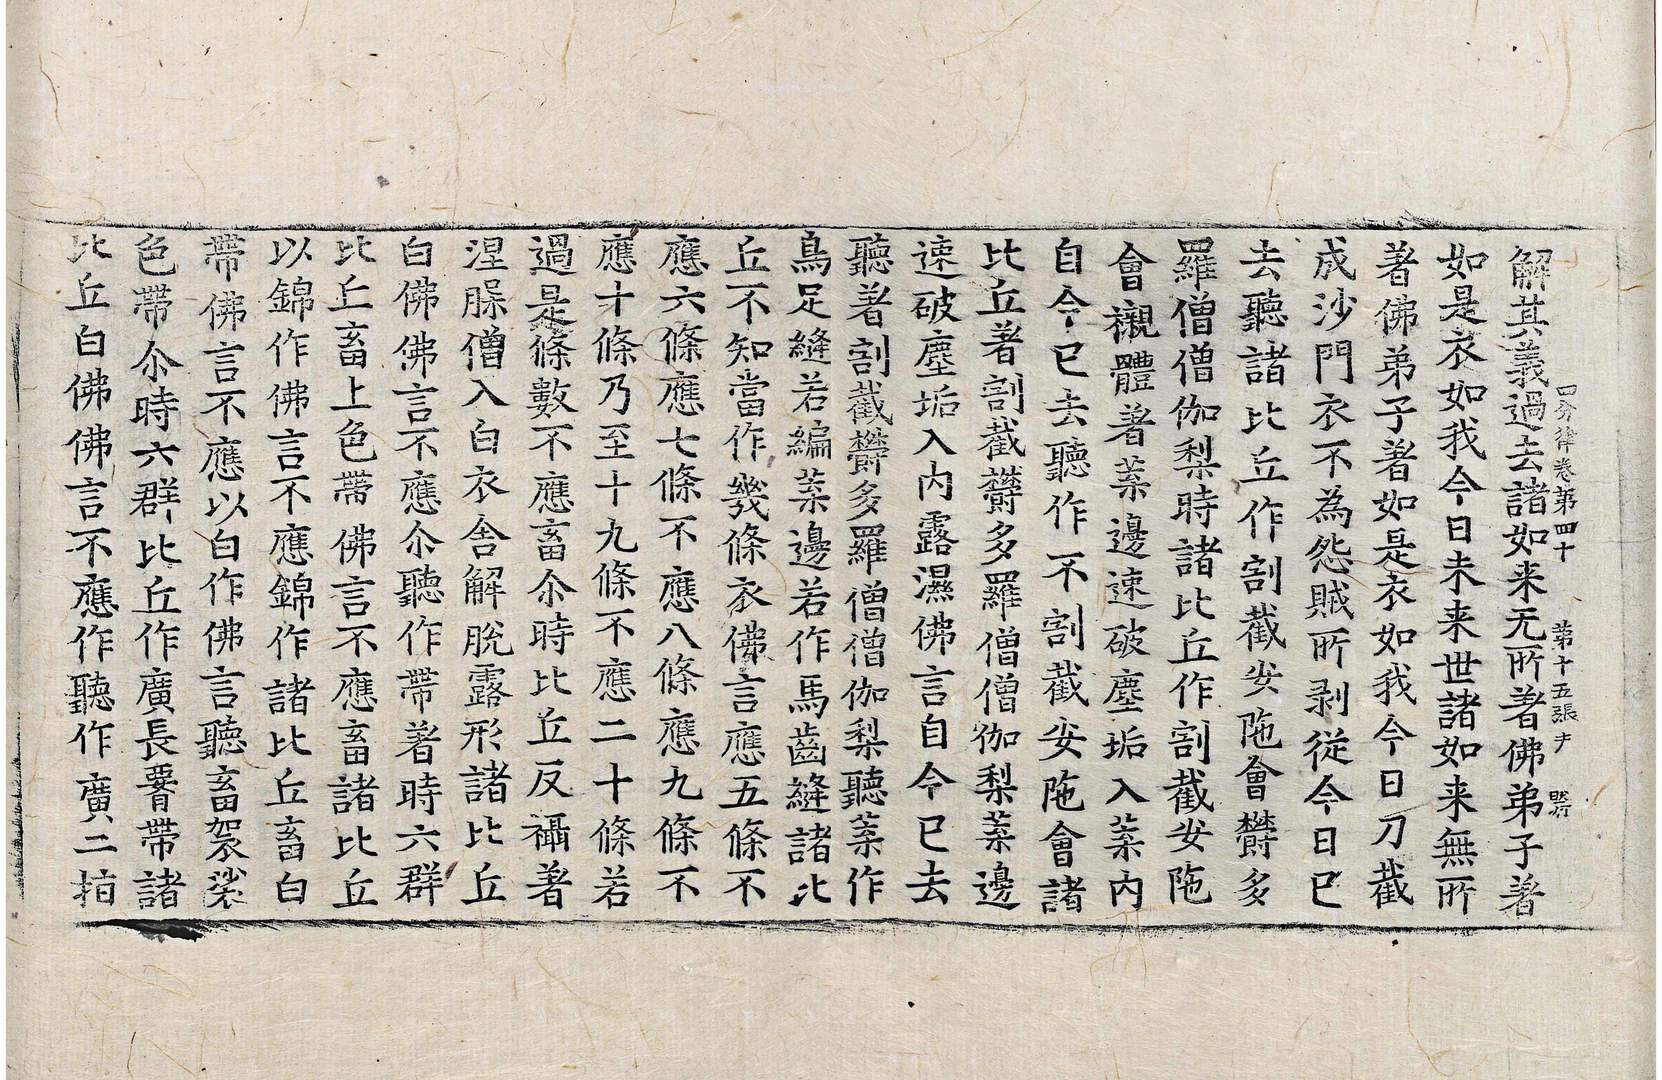 四分律卷第四十 第十五張
解其義過去諸如来无所著佛弟子著
如是衣如我今日未来世諸如来無所
著佛弟子著如是衣如我今日刀截
成沙門衣不為怨賊所剥從今日已
去聽諸比丘作割截安陁會欝多
羅僧僧伽梨時諸比丘作割截安陁
會襯體著菜邊速破塵垢入菜内
自今已去聽作不割截安陁會諸
比丘著割截欝多羅僧僧伽梨菜邊
速破塵垢入内露濕佛言自今已去
聽著割截欝多羅僧僧伽梨聽菜作
鳥足縫若編菜邊若作馬齒縫諸比
丘不知當作幾條衣佛言應五條不
應六條應七條不應八條應九條不
應十條乃至十九條不應二十條若
過是條數不應畜尒時比丘反襵著
涅脲僧入白衣舍解脫露形諸比丘
白佛佛言不應尒聽作帶著時六群
比丘畜上色帶佛言不應畜諸比丘
以錦作佛言不應錦作諸比丘畜白
帶佛言不應以白作佛言聽畜袈裟
色帶尒時六群比丘作廣長𦝫帶諸
比丘白佛佛言不應作聽作廣二指